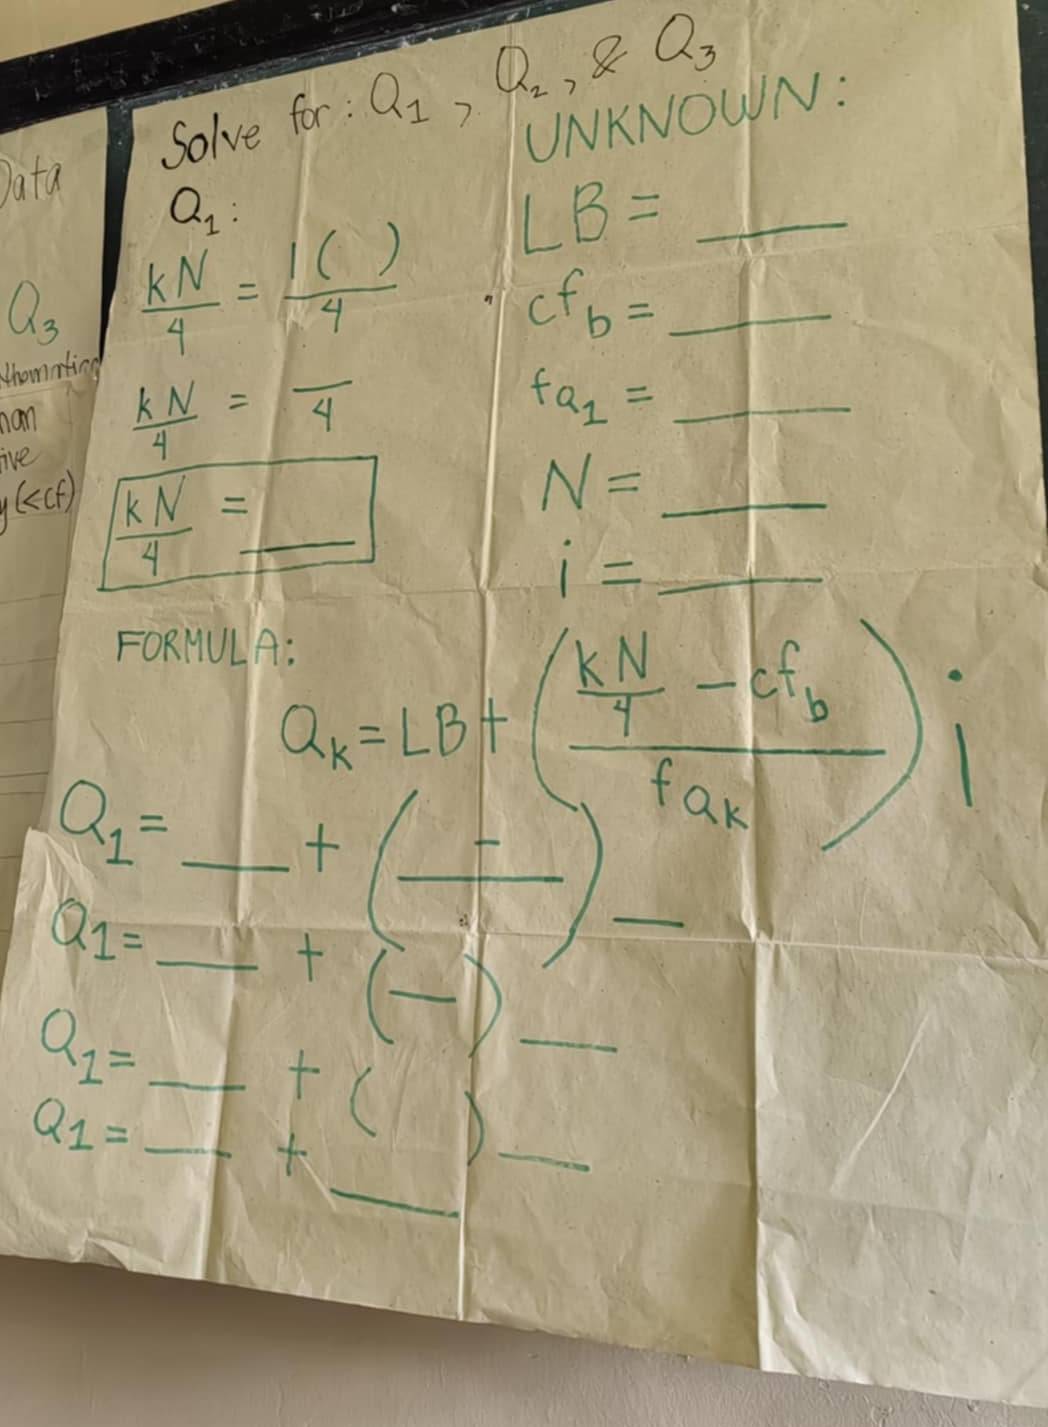 Data
Q3
man
ive
y(<cf)
Solve for: Q1, Q2, & Q3
Q1:
kN/4 = 1( )/4
kN/4 = __/4
kN/4 = ____
UNKNOWN:
LB = ____
cfb = ____
fQ1 = ____
N = ____
i = ____
FORMULA:
Qk = LB + ((kN/4 - cfb)/fQk) i
Q1 = ___ + ( - / ) __
Q1 = ___ + (—) ___
Q1 = ___ + ( ) ___
Q1 = ___ + ____